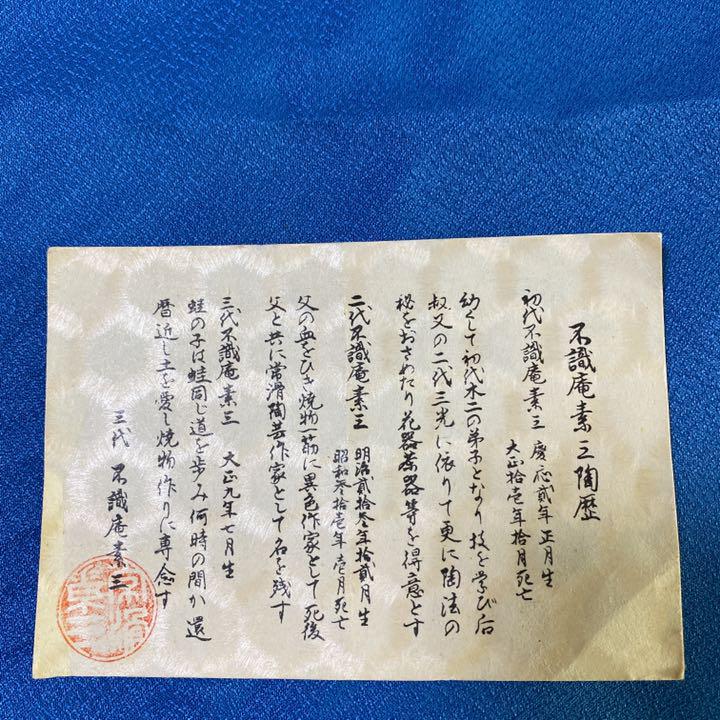 不識庵素三陶歴
初代不識庵素三 慶応貳年正月生
大正拾壱年拾月死亡
幼くして初代木二の弟子となり技を学び后
叔父の二代三光に依りて更に陶法の
秘をおさめたり花器茶器等を得意とす
二代不識庵素三 明治貳拾叁年拾貳月生
昭和叁拾壱年壱月死亡
父の血をひき焼物一筋に異色作家として死後
父と共に常滑陶芸作家として名を残す
三代不識庵素三 大正九年七月生
蛙の子は蛙同じ道を歩み何時の間か還
暦近し土を愛し焼物作りに専念す
三代 不識庵素三